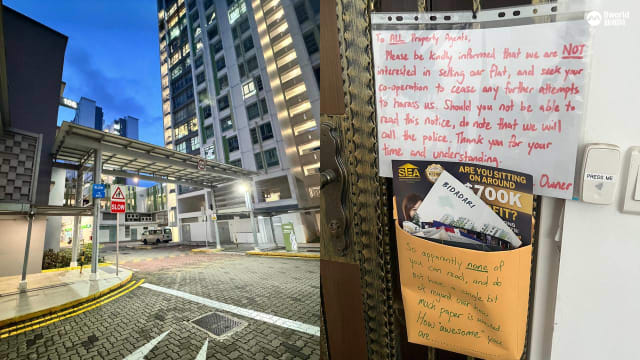 8world
SLOW
To ALL Property Agents,
Please be kindly informed that we are NOT
interested in selling our flat, and seek your
co-operation to cease any further attempts
to harass us. Should you not be able to
read this notice, do note that we will
call the police. Thank you for your
time and understanding.
Owner
PRESS ME
SEA
ARE YOU SITTING
ON AROUND
$700K
FIT?
BIDADARI
So apparently none of
you can read, and do
not have a single bit
of regard over how
much paper is wasted.
How "awesome" you
are.